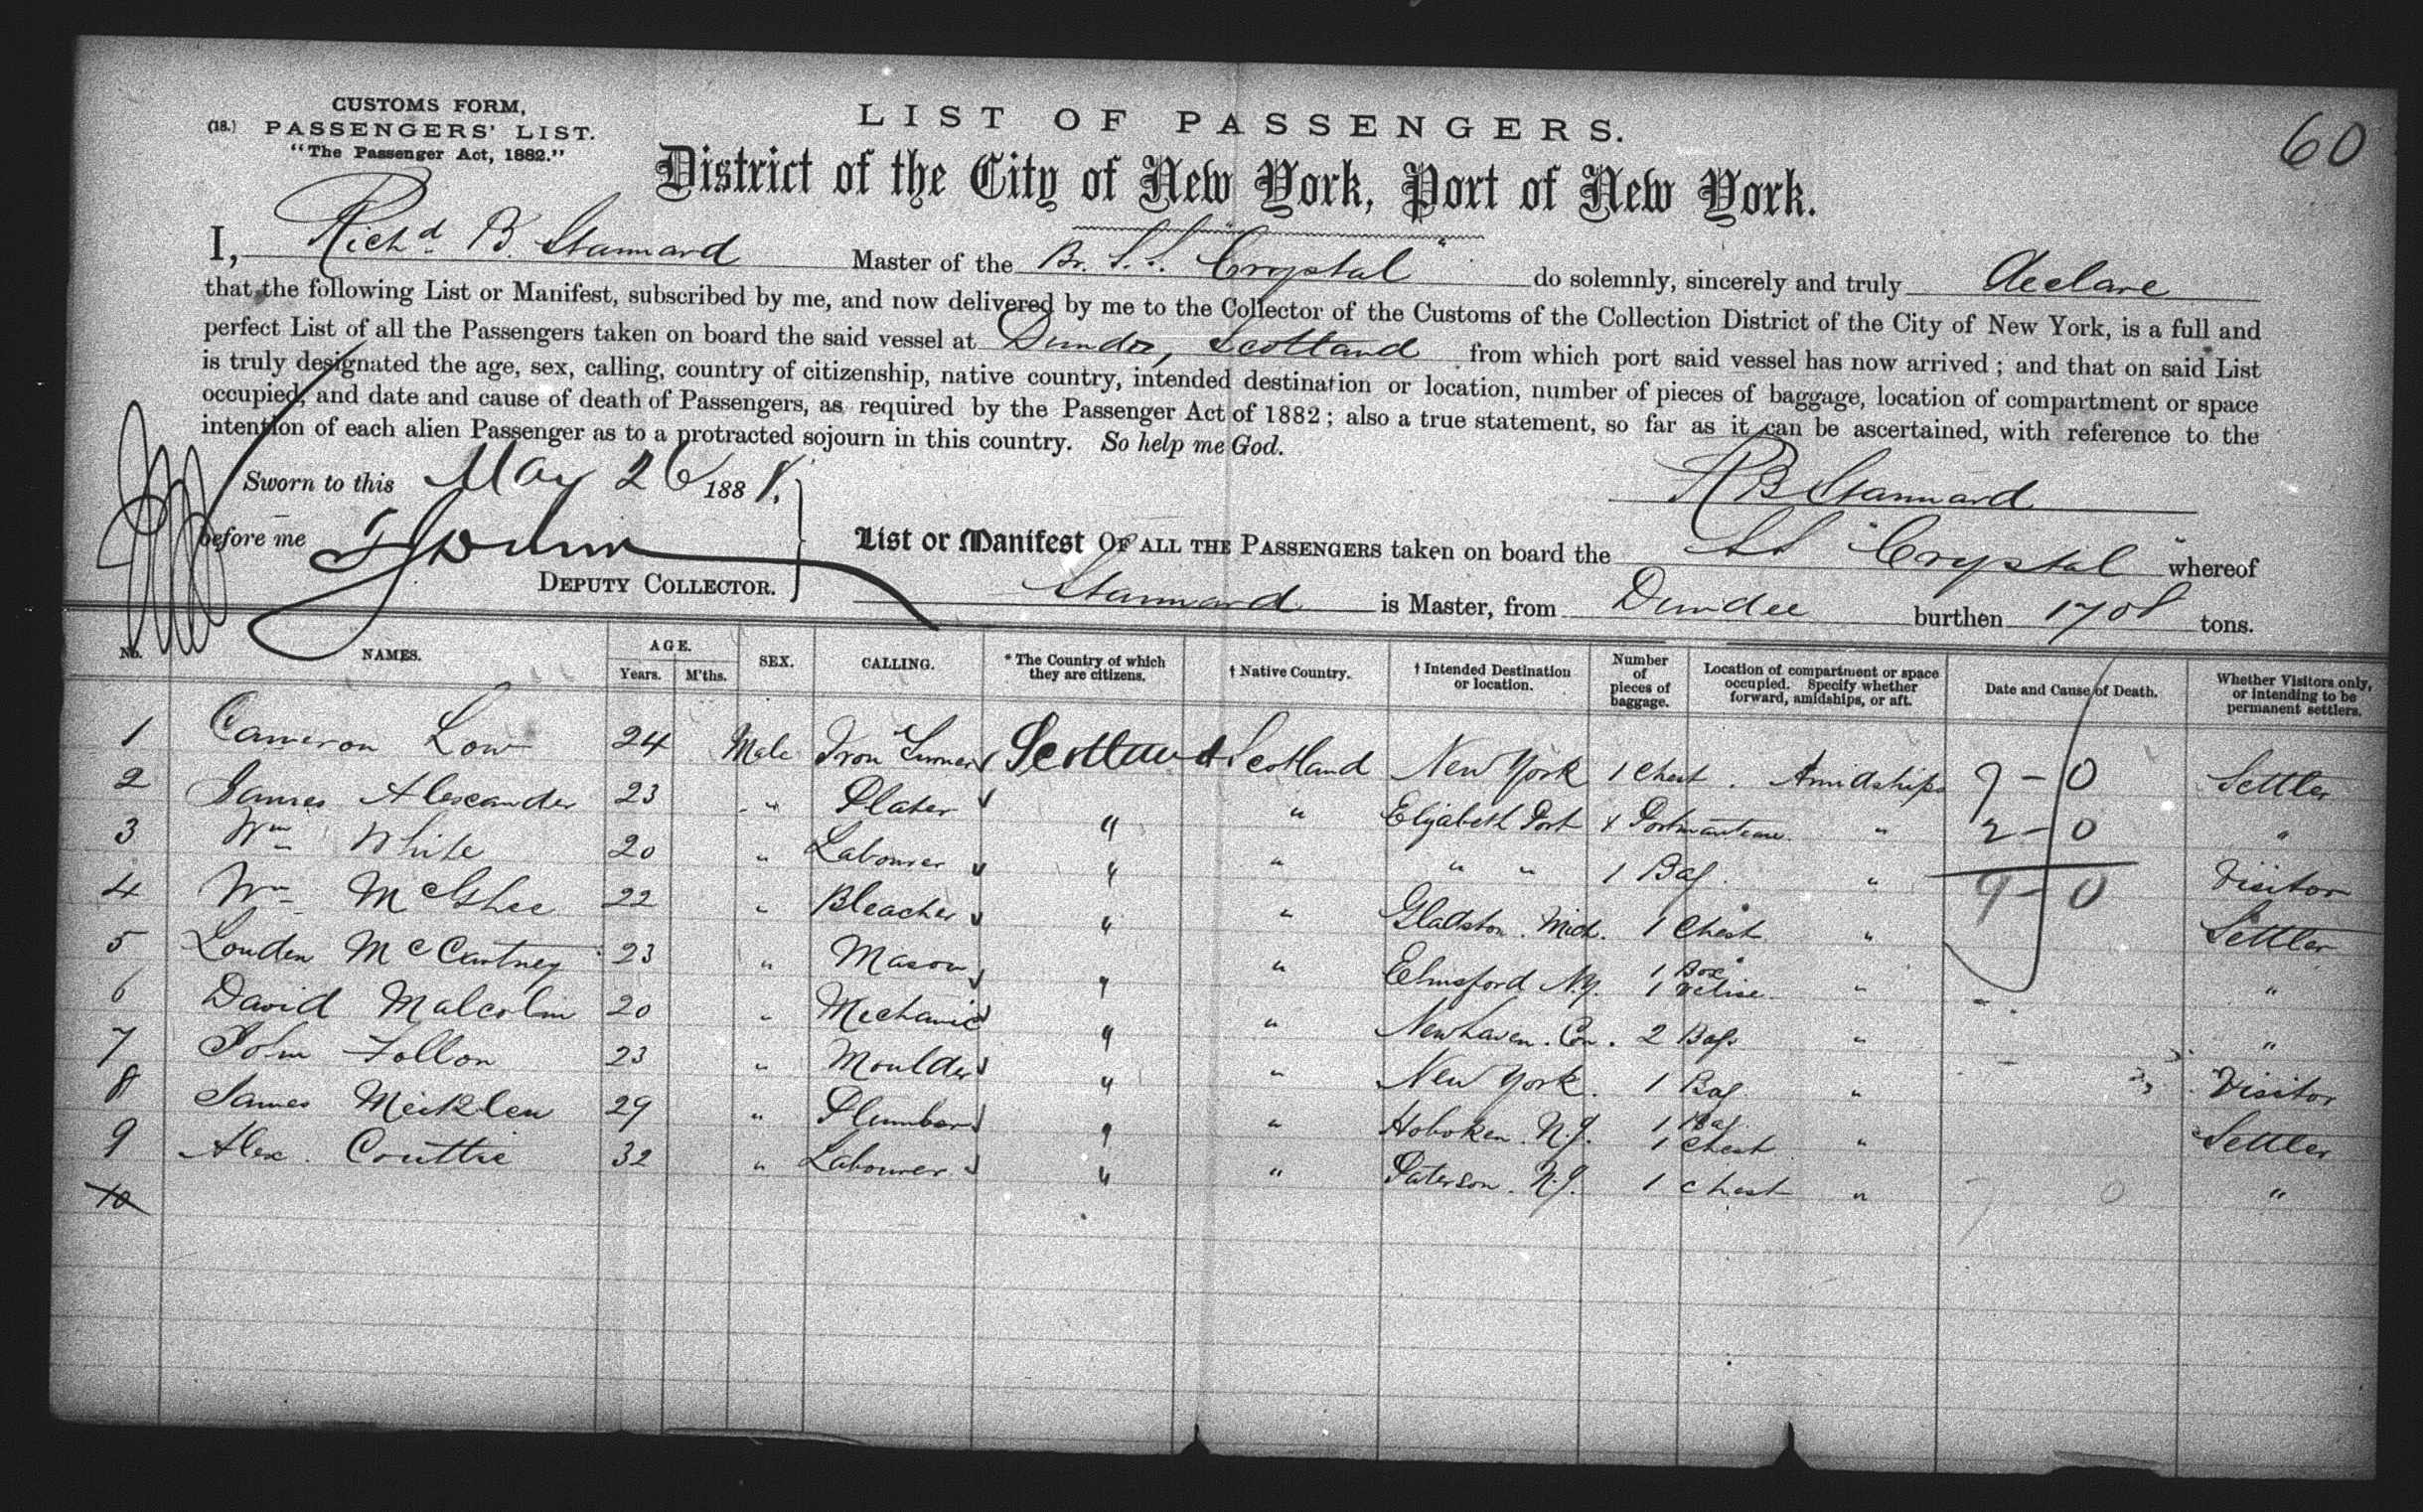 60
CUSTOMS FORM,
(18.) PASSENGERS' LIST.
"The Passenger Act, 1882."
LIST OF PASSENGERS.
District of the City of New York, Port of New York.
I, Richd B. Stannard Master of the Br. S.S. "Crystal" do solemnly, sincerely and truly declare
that the following List or Manifest, subscribed by me, and now delivered by me to the Collector of the Customs of the Collection District of the City of New York, is a full and
perfect List of all the Passengers taken on board the said vessel at Dundee, Scotland from which port said vessel has now arrived; and that on said List
is truly designated the age, sex, calling, country of citizenship, native country, intended destination or location, number of pieces of baggage, location of compartment or space
occupied, and date and cause of death of Passengers, as required by the Passenger Act of 1882; also a true statement, so far as it can be ascertained, with reference to the
intention of each alien Passenger as to a protracted sojourn in this country. So help me God.
Sworn to this May 26 1888. R B Stannard
before me
DEPUTY COLLECTOR.
List or Manifest OF ALL THE PASSENGERS taken on board the SS "Crystal" whereof
Stannard is Master, from Dundee burthen 1708 tons.
No. NAMES. AGE. Years. M'ths. SEX. CALLING. * The Country of which they are citizens. † Native Country. † Intended Destination or location. Number of pieces of baggage. Location of compartment or space occupied. Specify whether forward, amidships, or aft. Date and Cause of Death. Whether Visitors only, or intending to be permanent settlers.
1 Cameron Low 24 Male Iron Turner Scotland Scotland New York 1 Chest. Amidships 7 - 0 Settler
2 James Alexander 23 " Plater " " Elizabeth Port Portmanteau. " 2 - 0 "
3 Wm White 20 " Labourer " " " " 1 Bag. " 9 - 0 Visitor
4 Wm McGhee 22 " Bleacher " " Gladston. Mich. 1 Chest " Settler
5 Louden McCartney 23 " Mason " " Elmsford N.Y. 1 Box 1 Valise. " "
6 David Malcolm 20 " Mechanic " " Newhaven. Con. 2 Bags " "
7 John Follon 23 " Moulder " " New York. 1 Bag " Visitor
8 James Micklen 29 " Plumber " " Hoboken. N.J. 1 Bag 1 Chest " Settler
9 Alex. Couttie 32 " Labourer " " Paterson. N.J. 1 Chest " "
10